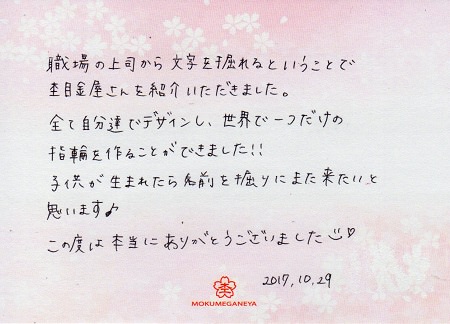 職場の上司から文字を掘れるということで
杢目金屋さんを紹介いただきました。
全て自分達でデザインし、世界で一つだけの
指輪を作ることができました!!
子供が生まれたら名前を掘りにまた来たいと
思います♪
この度は本当にありがとうございました☺♡
2017.10.29
杢
MOKUMEGANEYA